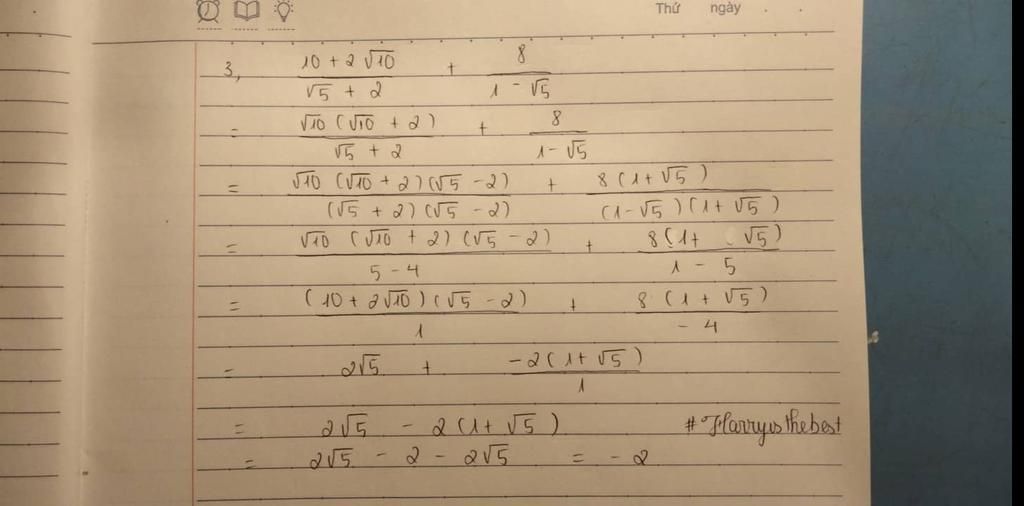 Thứ ngày . .
3, (10 + 2√10)/(√5 + 2) + 8/(1 - √5)
= √10 (√10 + 2)/(√5 + 2) + 8/(1 - √5)
= √10 (√10 + 2)(√5 - 2)/((√5 + 2)(√5 - 2)) + 8(1 + √5)/((1 - √5)(1 + √5))
= √10 (√10 + 2)(√5 - 2)/(5 - 4) + 8(1 + √5)/(1 - 5)
= (10 + 2√10)(√5 - 2)/1 + 8(1 + √5)/(-4)
= 2√5 + -2(1 + √5)/1
= 2√5 - 2(1 + √5) #Harryisthebest
= 2√5 - 2 - 2√5 = -2